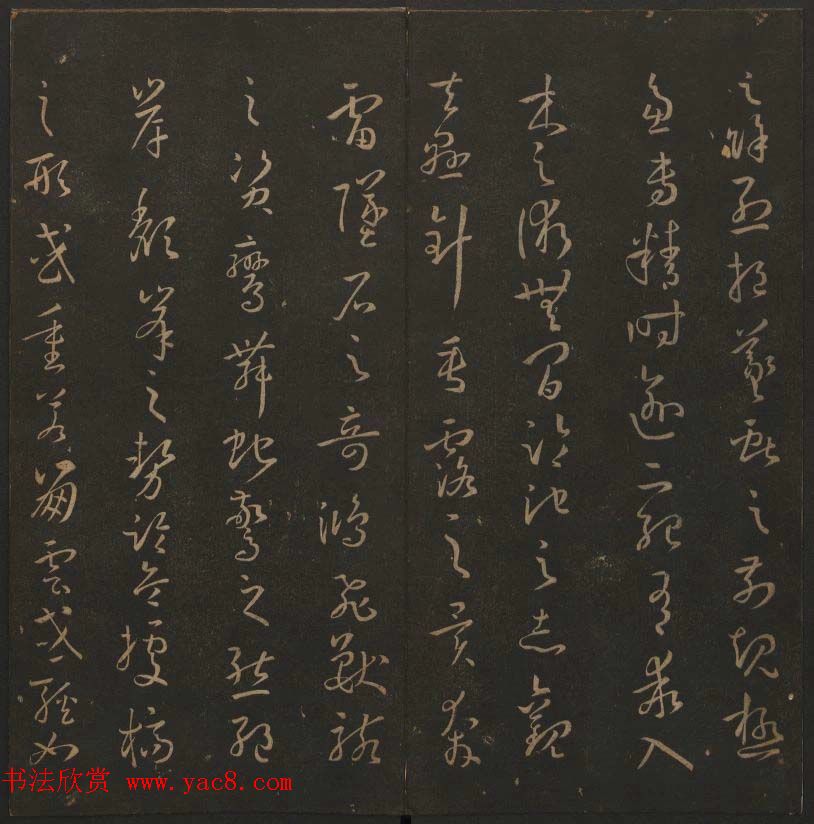 之餘烈挹羲獻之前規極
慮專精時逾二紀有乖入
木之術無間臨池之志觀
夫懸針垂露之異奔
雷墜石之奇鴻飛獸駭
之資鸞舞蛇驚之態絕
岸頹峯之勢臨危據槁
之形或重若崩雲或輕如
书法欣赏 www.yac8.com